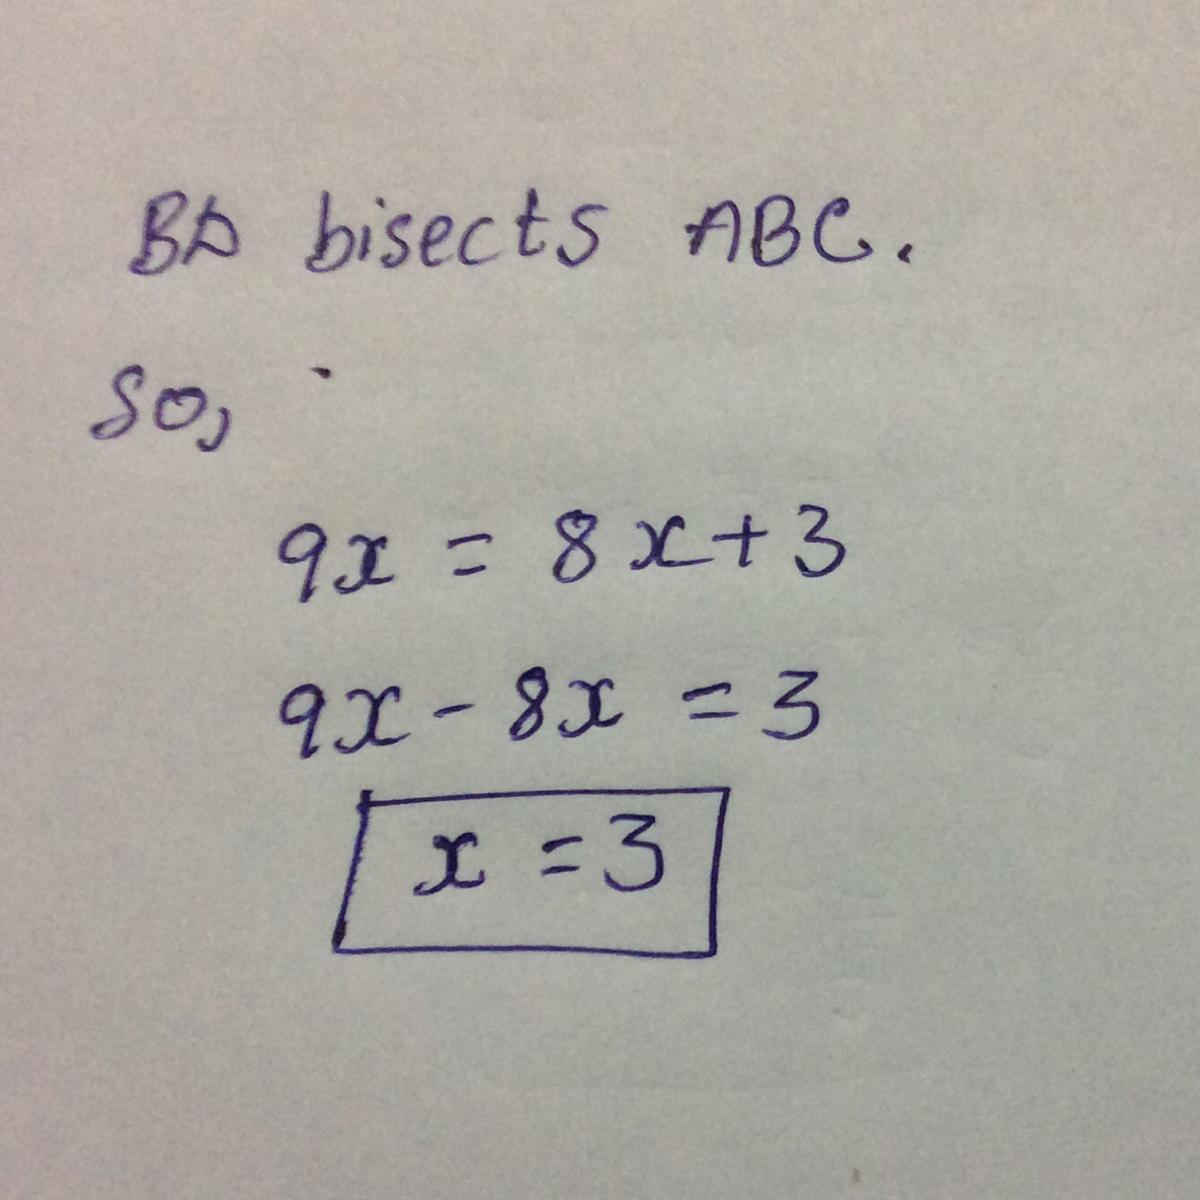 BD bisects ABC.
So,
9x = 8x+3
9x - 8x = 3
x = 3